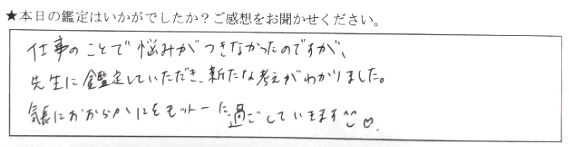 ★本日の鑑定はいかがでしたか？ご感想をお聞かせください。
仕事のことで悩みがつきなかったのですが、
先生に鑑定していただき、新たな考えがわかりました。
をモットーに過ごしていきます^^♡.